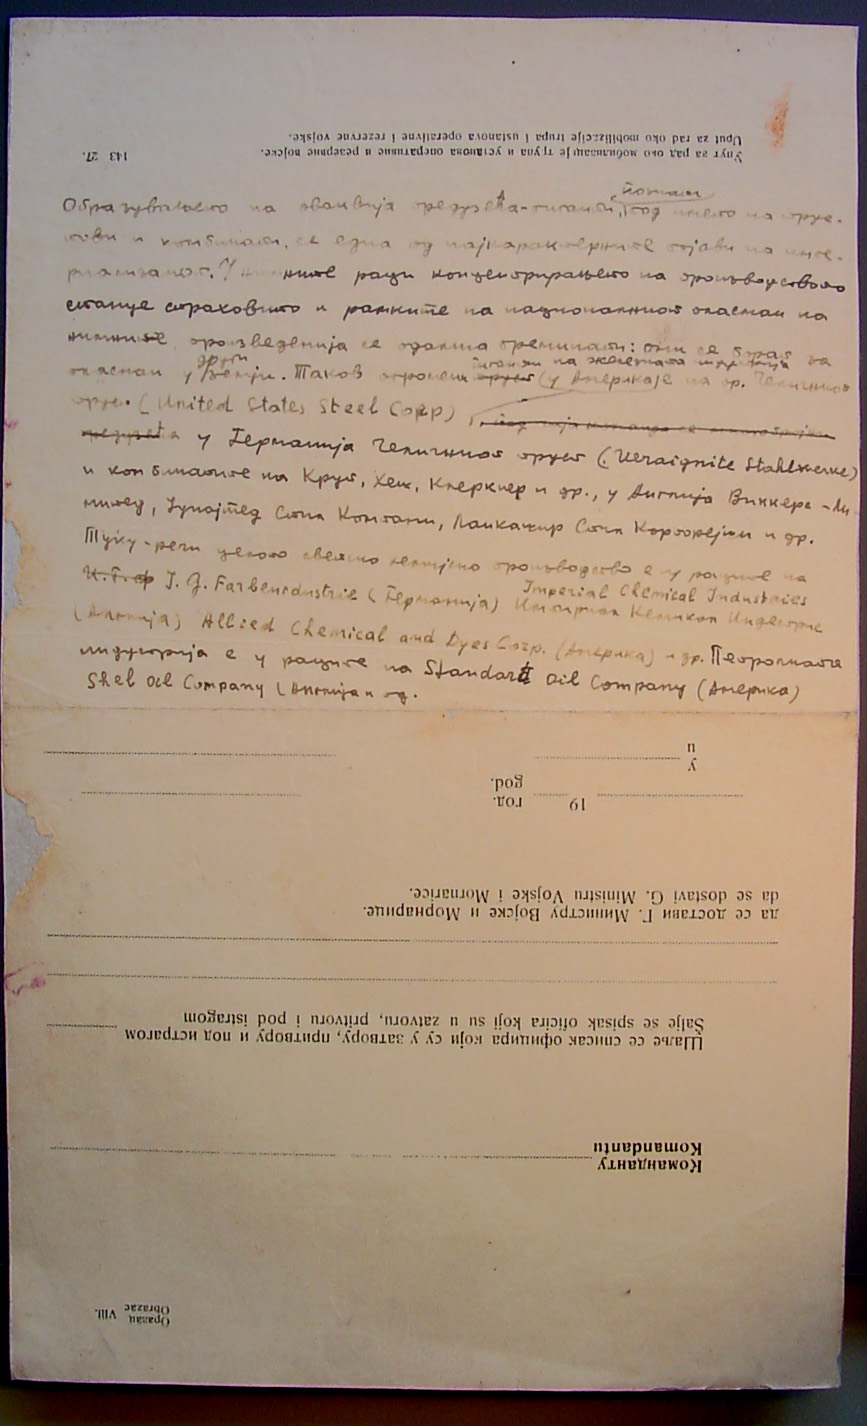 143 27.
Упут за рад око мобилизације трупа и установа оперативне и резервне војске.
Uput za rad oko mobilizacije trupa i ustanova operativne i rezervne vojske.
познати
Образувањето на овакви предузећа-гиганти, под името на трус-
тови и комбинати, се една од најкарактерните појави на импе-
ријализмот. ните раци концентрирањето на производството
станује страховито и рамките на националниот опасман на
нивните произведенија се одамна преминати: они се борат за
други гиганти на железната индустрија
опасман у земји. Таков огромен труст (у Америка је на пр. Челичниот
труст (United States Steel Corp),
у Германија Челичниот труст (Veraignite Stahlwerke)
и комбинатите на Круп, Хеш, Клекнер и др., у Англија Виккерс-Ли-
митед, Јунајтед Стил Компани, Ланкашир Стил Корпорејшн и др.
Туку-речи целото светско хемијско производство е у рацете на
Imperial Chemical Industries
I. G. Farbenidustrie (Германија) Империал Кемикал Индастрис
(Англија) Allied Chemical and Dyes Corp. (Америка) и др. Петролната
индустрија е у рацете на Standard Oil Company (Америка)
Shel Oil Company (Англија и др.
у
u
19 год.
god.
да се достави Г. Министру Војске и Морнарице.
da se dostavi G. Ministru Vojske i Mornarice.
Шаље се списак официра који су у затвору, притвору и под истрагом
Šalje se spisak oficira koji su u zatvoru, pritvoru i pod istragom
Команданту
Komandantu
Образац VIII.
Obrazac